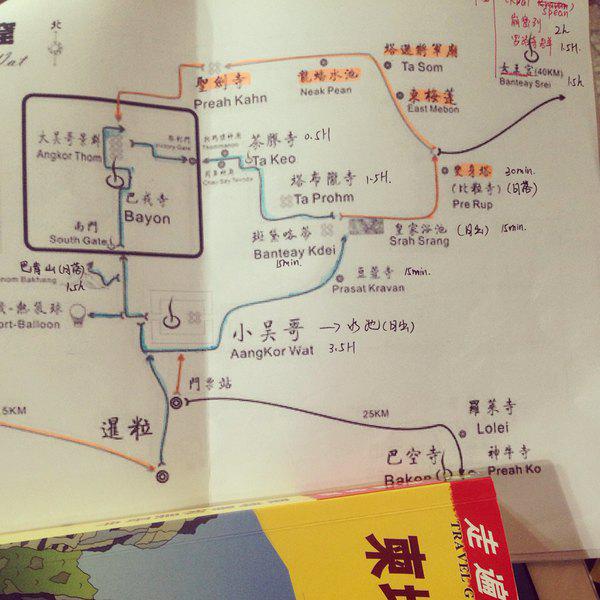 北
崩密列 2h
1.5H.
(40KM)
Banteay Srei
1.5h
塔遜將軍廟
Ta Som
聖劍寺
Preah Kahn
龍蟠水池
Neak Pean
東梅蓬
East Mebon
大吳哥景群
Angkor Thom
勝利門
Victory Gate
Thommanon
Chau Say Tevoda
茶膠寺 0.5H
Ta Keo
塔布隆寺 1.5H.
Ta Prohm
變身塔 30min.
(比粒寺) (日落)
Pre Rup
巴戎寺
Bayon
南門
South Gate
班黛喀蒂
Banteay Kdei
15min.
皇家浴池 (日出) 15min.
Srah Srang
巴肯山(日落)
nom Bakhang
1.5h
豆蔻寺 15min.
Prasat Kravan
熱氣球
ort-Balloon
小吳哥 → 水池(日出)
AangKor Wat 3.5H
門票站
5KM
暹粒
25KM
羅萊寺
Lolei
巴空寺
Bakon
神牛寺
Preah Ko
走遍
TRAVEL G